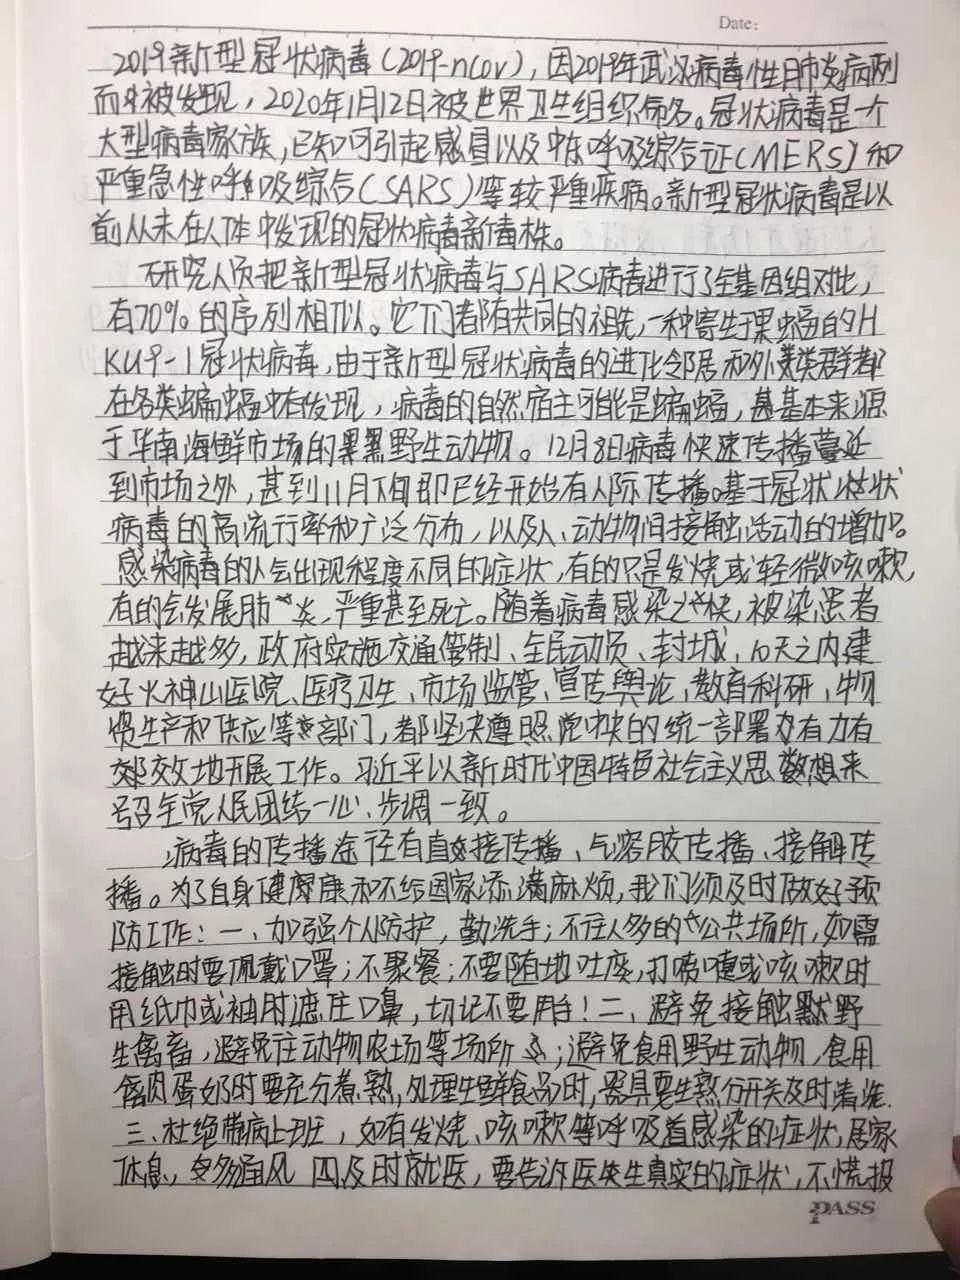 Date:
2019新型冠状病毒(2019-nCov),因2019年武汉病毒性肺炎病例
而被发现,2020年1月12日被世界卫生组织命名。冠状病毒是一个
大型病毒家族,已知可引起感冒以及中东呼吸综合证(MERS)和
严重急性呼吸综合(SARS)等较严重疾病。新型冠状病毒是以
前从未在人体中发现的冠状病毒新毒株。
研究人员把新型冠状病毒与SARS病毒进行了全基因组对比,
有70%的序列相似。它们都有共同的祖先,一种寄生于果蝠的H
KU9-1冠状病毒,由于新型冠状病毒的进化邻居和外类群都
在各类蝙蝠中有发现,病毒的自然宿主可能是蝙蝠,甚基本来源
于华南海鲜市场的野生动物。12月8日病毒快速传播蔓延
到市场之外,甚到11月下旬即已经开始有人际传播。基于冠状状
病毒的高流行率和广泛分布,以及人、动物间接触活动的增加。
感染病毒的人会出现程度不同的症状,有的只是发烧或轻微咳嗽,
有的会发展肺炎,严重甚至死亡。随着病毒感染之快,被染患者
越来越多,政府实施交通管制、全民动员、封城、10天之内建
好火神山医院、医疗卫生、市场监管、宣传舆论、教育科研、物
资生产和供应等部门,都坚决遵照党中央的统一部署有力有
效地开展工作。习近平以新时代中国特色社会主义思想来
号召全党人民团结一心、步调一致。
病毒的传播途径有直接传播、气溶胶传播、接触传
播。为了自身健康和不给国家添满麻烦,我们须及时做好预
防工作:一、加强个人防护,勤洗手;不往人多的公共场所,如需
接触时要佩戴口罩;不聚餐;不要随地吐痰,打喷嚏或咳嗽时
用纸巾或袖肘遮住口鼻,切记不要用手!二、避免接触野
生禽畜,避免往动物农场等场所;避免食用野生动物,食用
禽肉蛋奶时要充分煮熟,处理生鲜食品时,器具要生熟分开及时清洗.
三、杜绝带病上班,如有发烧、咳嗽等呼吸道感染的症状,居家
休息,多通风 四及时就医,要告诉医生真实的症状,不慌报
PASS